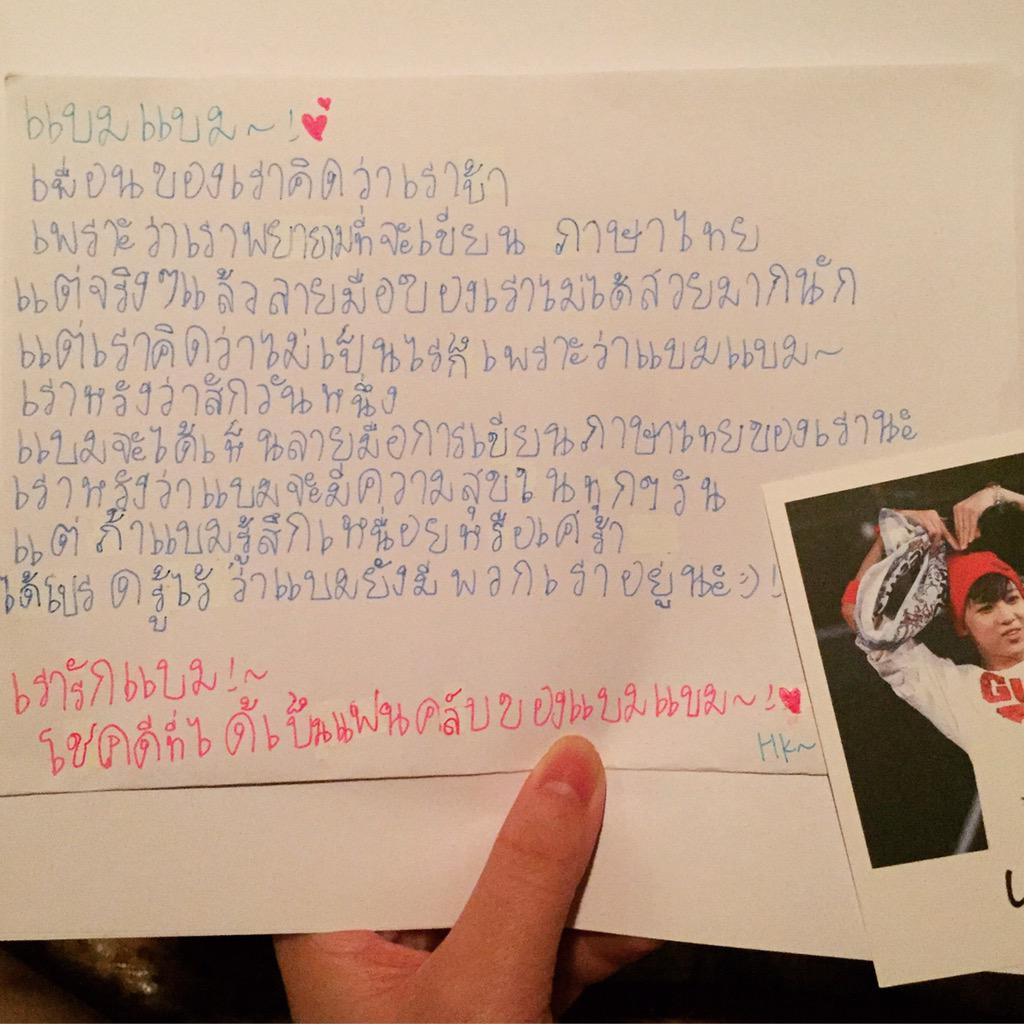 แบมแบม~!
เพื่อนของเราคิดว่าเราบ้า
เพราะว่าเราพยายามที่จะเขียน ภาษาไทย
แต่จริงๆแล้วลายมือของเราไม่ได้สวยมากนัก
แต่เราคิดว่าไม่เป็นไรก็ เพราะว่าแบมแบม~
เราหวังว่าสักวันหนึ่ง
แบมจะได้เห็นลายมือการเขียนภาษาไทยของเรานะ
เราหวังว่าแบมจะมีความสุขในทุกๆวัน
แต่ ถ้าแบมรู้สึกเหนื่อยหรือเศร้า
ได้โปรดรู้ไว้ ว่าแบมยังมีพวกเราอยู่นะ:)!
เรารักแบม!~
โชคดีที่ได้เป็นแฟนคลับของแบมแบม~!
HK~